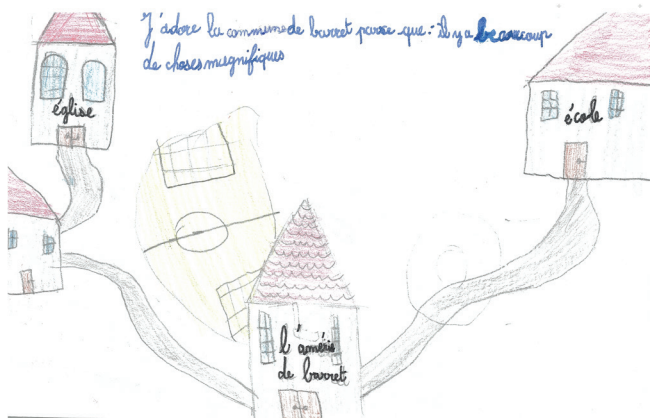 J'adore la commune de barret parsse que : il y a beaucoup
de choses magnifiques
église
école
l'amérie
de barret